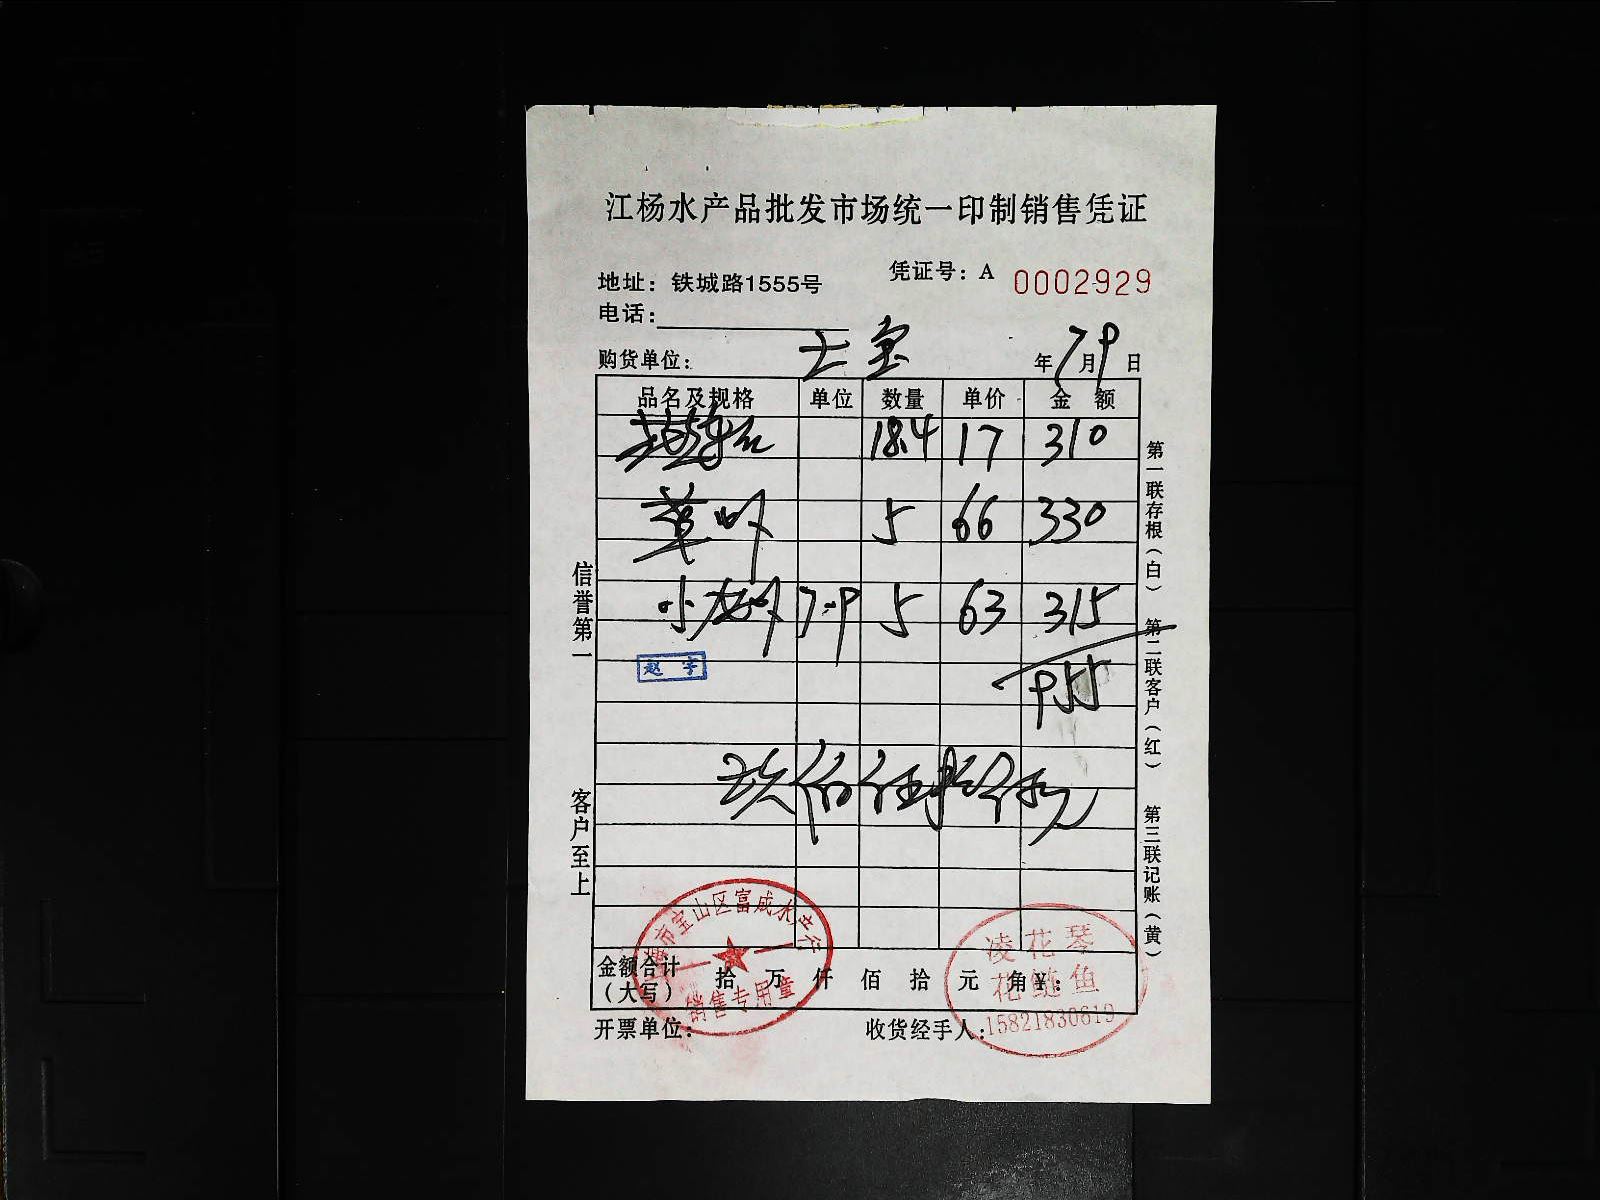 江杨水产品批发市场统一印制销售凭证
凭证号：A 0002929
地址：铁城路1555号
电话：
购货单位： 年 7 月 9 日
品名及规格 单位 数量 单价 金 额
18.4 17 310
草虾 5 66 330
小龙虾 7-9 5 63 315
赵 宇
955
玖佰伍拾伍元
金额合计（大写） 拾 万 仟 佰 拾 元 角 ¥：
开票单位： 收货经手人：
信誉第一
客户至上
第一联存根（白） 第二联客户（红） 第三联记账（黄）
海市宝山区富成水产行
销售专用章
凌花琴
花鲢鱼
15821830619